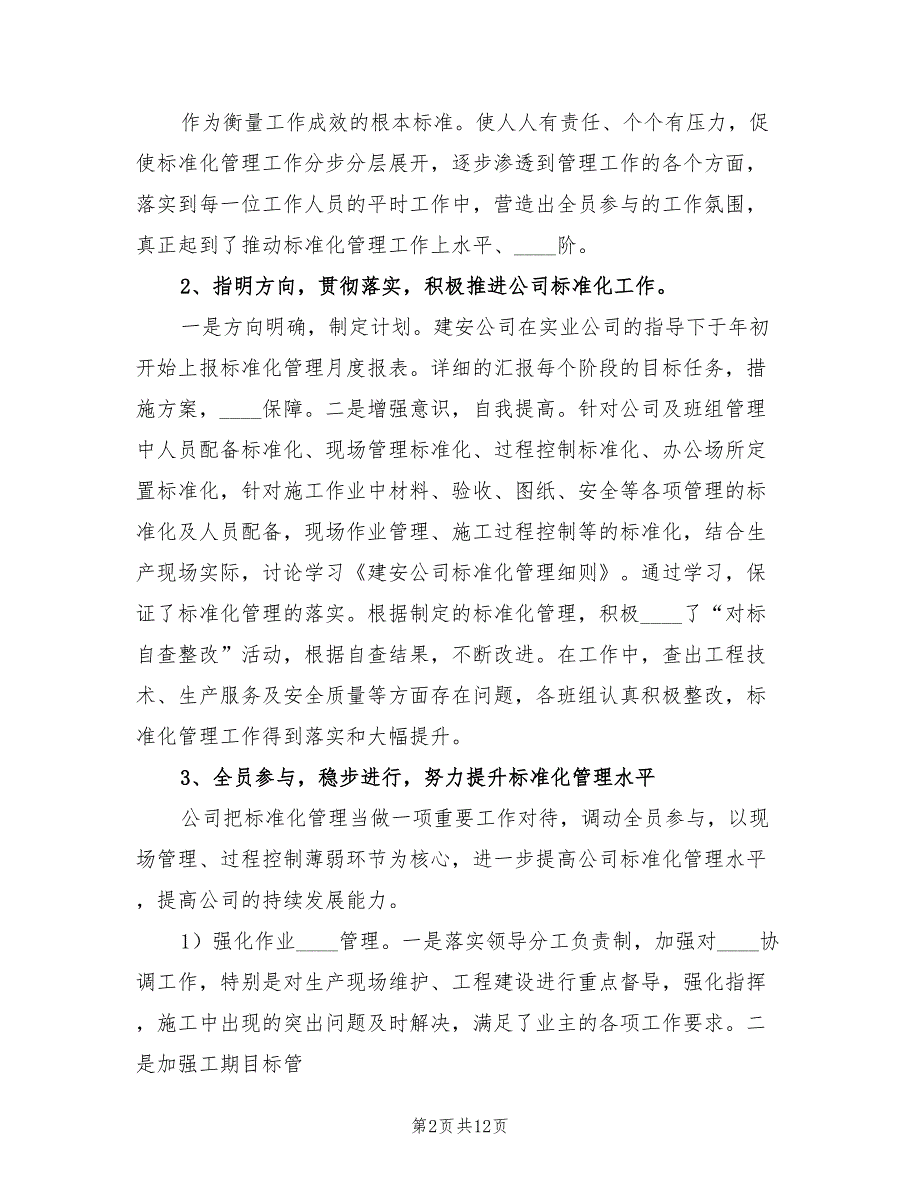 作为衡量工作成效的根本标准。使人人有责任、个个有压力，促
使标准化管理工作分步分层展开，逐步渗透到管理工作的各个方面，
落实到每一位工作人员的平时工作中，营造出全员参与的工作氛围，
真正起到了推动标准化管理工作上水平、____阶。
2、指明方向，贯彻落实，积极推进公司标准化工作。
一是方向明确，制定计划。建安公司在实业公司的指导下于年初
开始上报标准化管理月度报表。详细的汇报每个阶段的目标任务，措
施方案，____保障。二是增强意识，自我提高。针对公司及班组管理
中人员配备标准化、现场管理标准化、过程控制标准化、办公场所定
置标准化，针对施工作业中材料、验收、图纸、安全等各项管理的标
准化及人员配备，现场作业管理、施工过程控制等的标准化，结合生
产现场实际，讨论学习《建安公司标准化管理细则》。通过学习，保
证了标准化管理的落实。根据制定的标准化管理，积极____了“对标
自查整改”活动，根据自查结果，不断改进。在工作中，查出工程技
术、生产服务及安全质量等方面存在问题，各班组认真积极整改，标
准化管理工作得到落实和大幅提升。
3、全员参与，稳步进行，努力提升标准化管理水平
公司把标准化管理当做一项重要工作对待，调动全员参与，以现
场管理、过程控制薄弱环节为核心，进一步提高公司标准化管理水平
，提高公司的持续发展能力。
1）强化作业____管理。一是落实领导分工负责制，加强对____协
调工作，特别是对生产现场维护、工程建设进行重点督导，强化指挥
，施工中出现的突出问题及时解决，满足了业主的各项工作要求。二
是加强工期目标管
第2页共12页